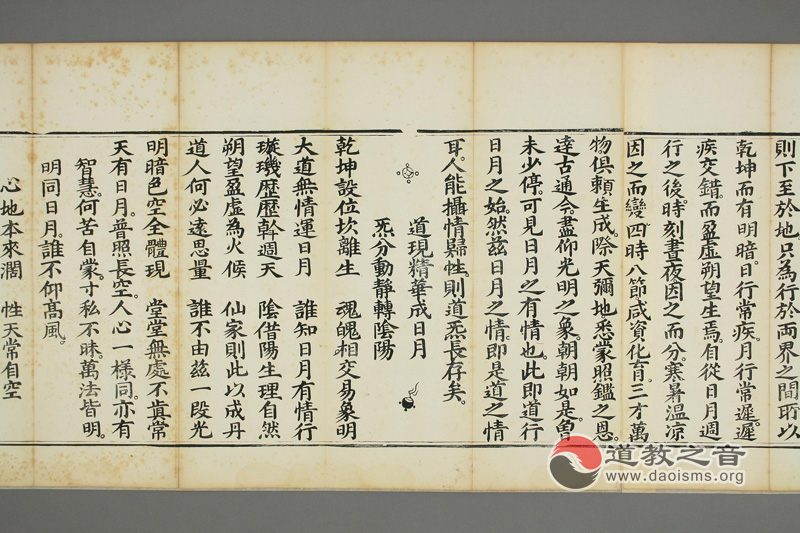 則下至於地只為行於兩界之間所以
乾坤而有明暗。日行常疾。月行常遲。遲
疾交錯。而盈虛朔望生焉。自從日月週
行之後。時刻晝夜因之而分。寒暑溫涼
因之而變。四時八節咸資化育。三才萬
物俱賴生成。際天彌地悉蒙照鑑之恩。
達古通今。盡仰光明之象。朝朝如是。曾
未少停。可見日月之有情也。此即道行
日月之始。然茲日月之情。即是道之情
耳。人能攝情歸性。則道炁長存矣。
道現精華成日月
炁分動靜轉陰陽
乾坤設位坎離生 魂魄相交易象明
大道無情運日月 誰知日月有情行
璇璣歷歷斡週天 陰借陽生理自然
朔望盈虛為火候 仙家則此以成丹
道人何必遠思量 誰不由茲一段光
明暗色空全體現 堂堂無處不真常
天有日月。普照長空。人心一樣同。亦有
智慧。何苦自蒙。寸私不昧。萬法皆明。
明同日月。誰不仰高風。
心地本來濶 性天常自空
道教之音
www.daoisms.org